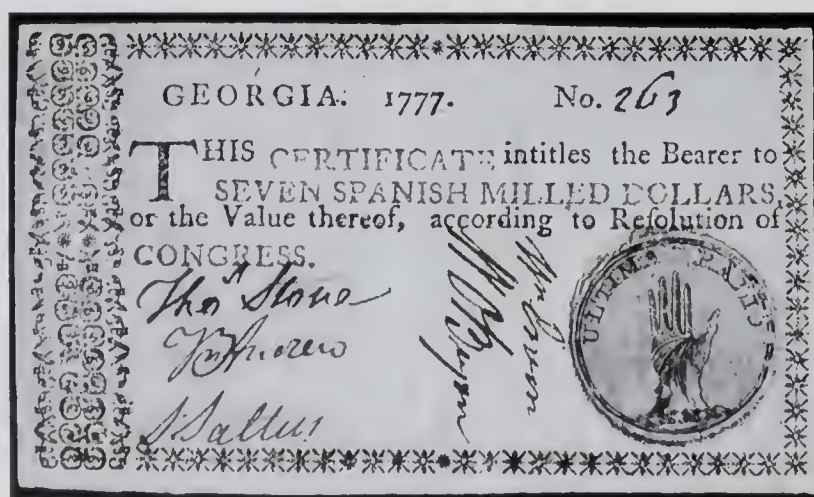 GEORGIA. 1777. No. 263
THIS CERTIFICATE intitles the Bearer to
SEVEN SPANISH MILLED DOLLARS,
or the Value thereof, according to Reſolution of
CONGRESS.
Thos Stone
S. Saltus
ULTIMA RATIO